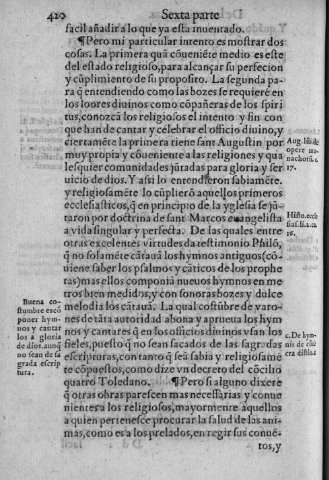 420
Sexta parte
facil añadir a lo que ya esta inuentado.
¶Pero mi particular intento es mostrar dos
cosas. La primera quā cōueniēte medio es este
del estado religioso, para alcançar su perfecion
y cūplimiento de su proposito. La segunda pa-
ra q̄ entendiendo como las bozes se requierē en
los loores diuinos como cōpañeras de los spiri
tus, conozcā los religiosos el intento y fin con
que han de cantar y celebrar el officio diuino, y
ciertamēte la primera tiene sant Augustin por
muy propia y cōueniente a las religiones y qua
lesquier comunidades jūtadas para gloria y ser
uicio de dios. Y assi lo entendieron sabiamēte.
y religiosamēte lo cūplierō aquellos primeros
ecclesiasticos, q̄ en principio de la yglesia se jū-
taron por doctrina de sant Marcos euangelista
a vida singular y perfecta. De las quales entre
otras excelentes virtudes da testimonio Philō,
q̄ no solamēte cātauā los hymnos antiguos (cō
uiene saber los psalmos y cāticos de los prophe
tas) mas ellos componiā nueuos hymnos en me
tros bien medidos, y con sonoras bozes y dulce
melodia los cātauā. La qual costūbre de varo-
nes de tāta autoridad abona y aprueua los hym
nos y cantares q̄ en los officios diuinos vsan los
fieles, puesto q̄ no sean sacados de las sagradas
escripturas, con tanto q̄ seā sabia y religiosamē
te cōpuestos, como dize vn decreto del cōcilio
quarto Toledano. ¶Pero si alguno dixere
q̄ otras obras parescen mas necessarias y conue
nientes a los religiosos, mayormente aquellos
a quien pertenesce procurar la salud de las ani-
mas, como es a los prelados, en regir sus conuē-
tos, y
Aug. lib. de
opere mo-
nachorū. c.
17.
Histo. eccle
sias. li. 2. c.
16.
Buena co-
stumbre es cō
poner hym-
nos y cantar
los a gloria
de dios, aunq̄
no sean de sa
grada escrip
tura.
c. De hym-
nis de cōse
cra distin. 1